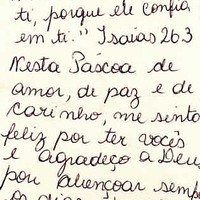 ti, porque ele confia
em ti." Isaías 26.3
Nesta Páscoa de
amor, de paz e de
carinho, me sinto
feliz por ter vocês
e agradeço a Deus
por abençoar semp
os dias